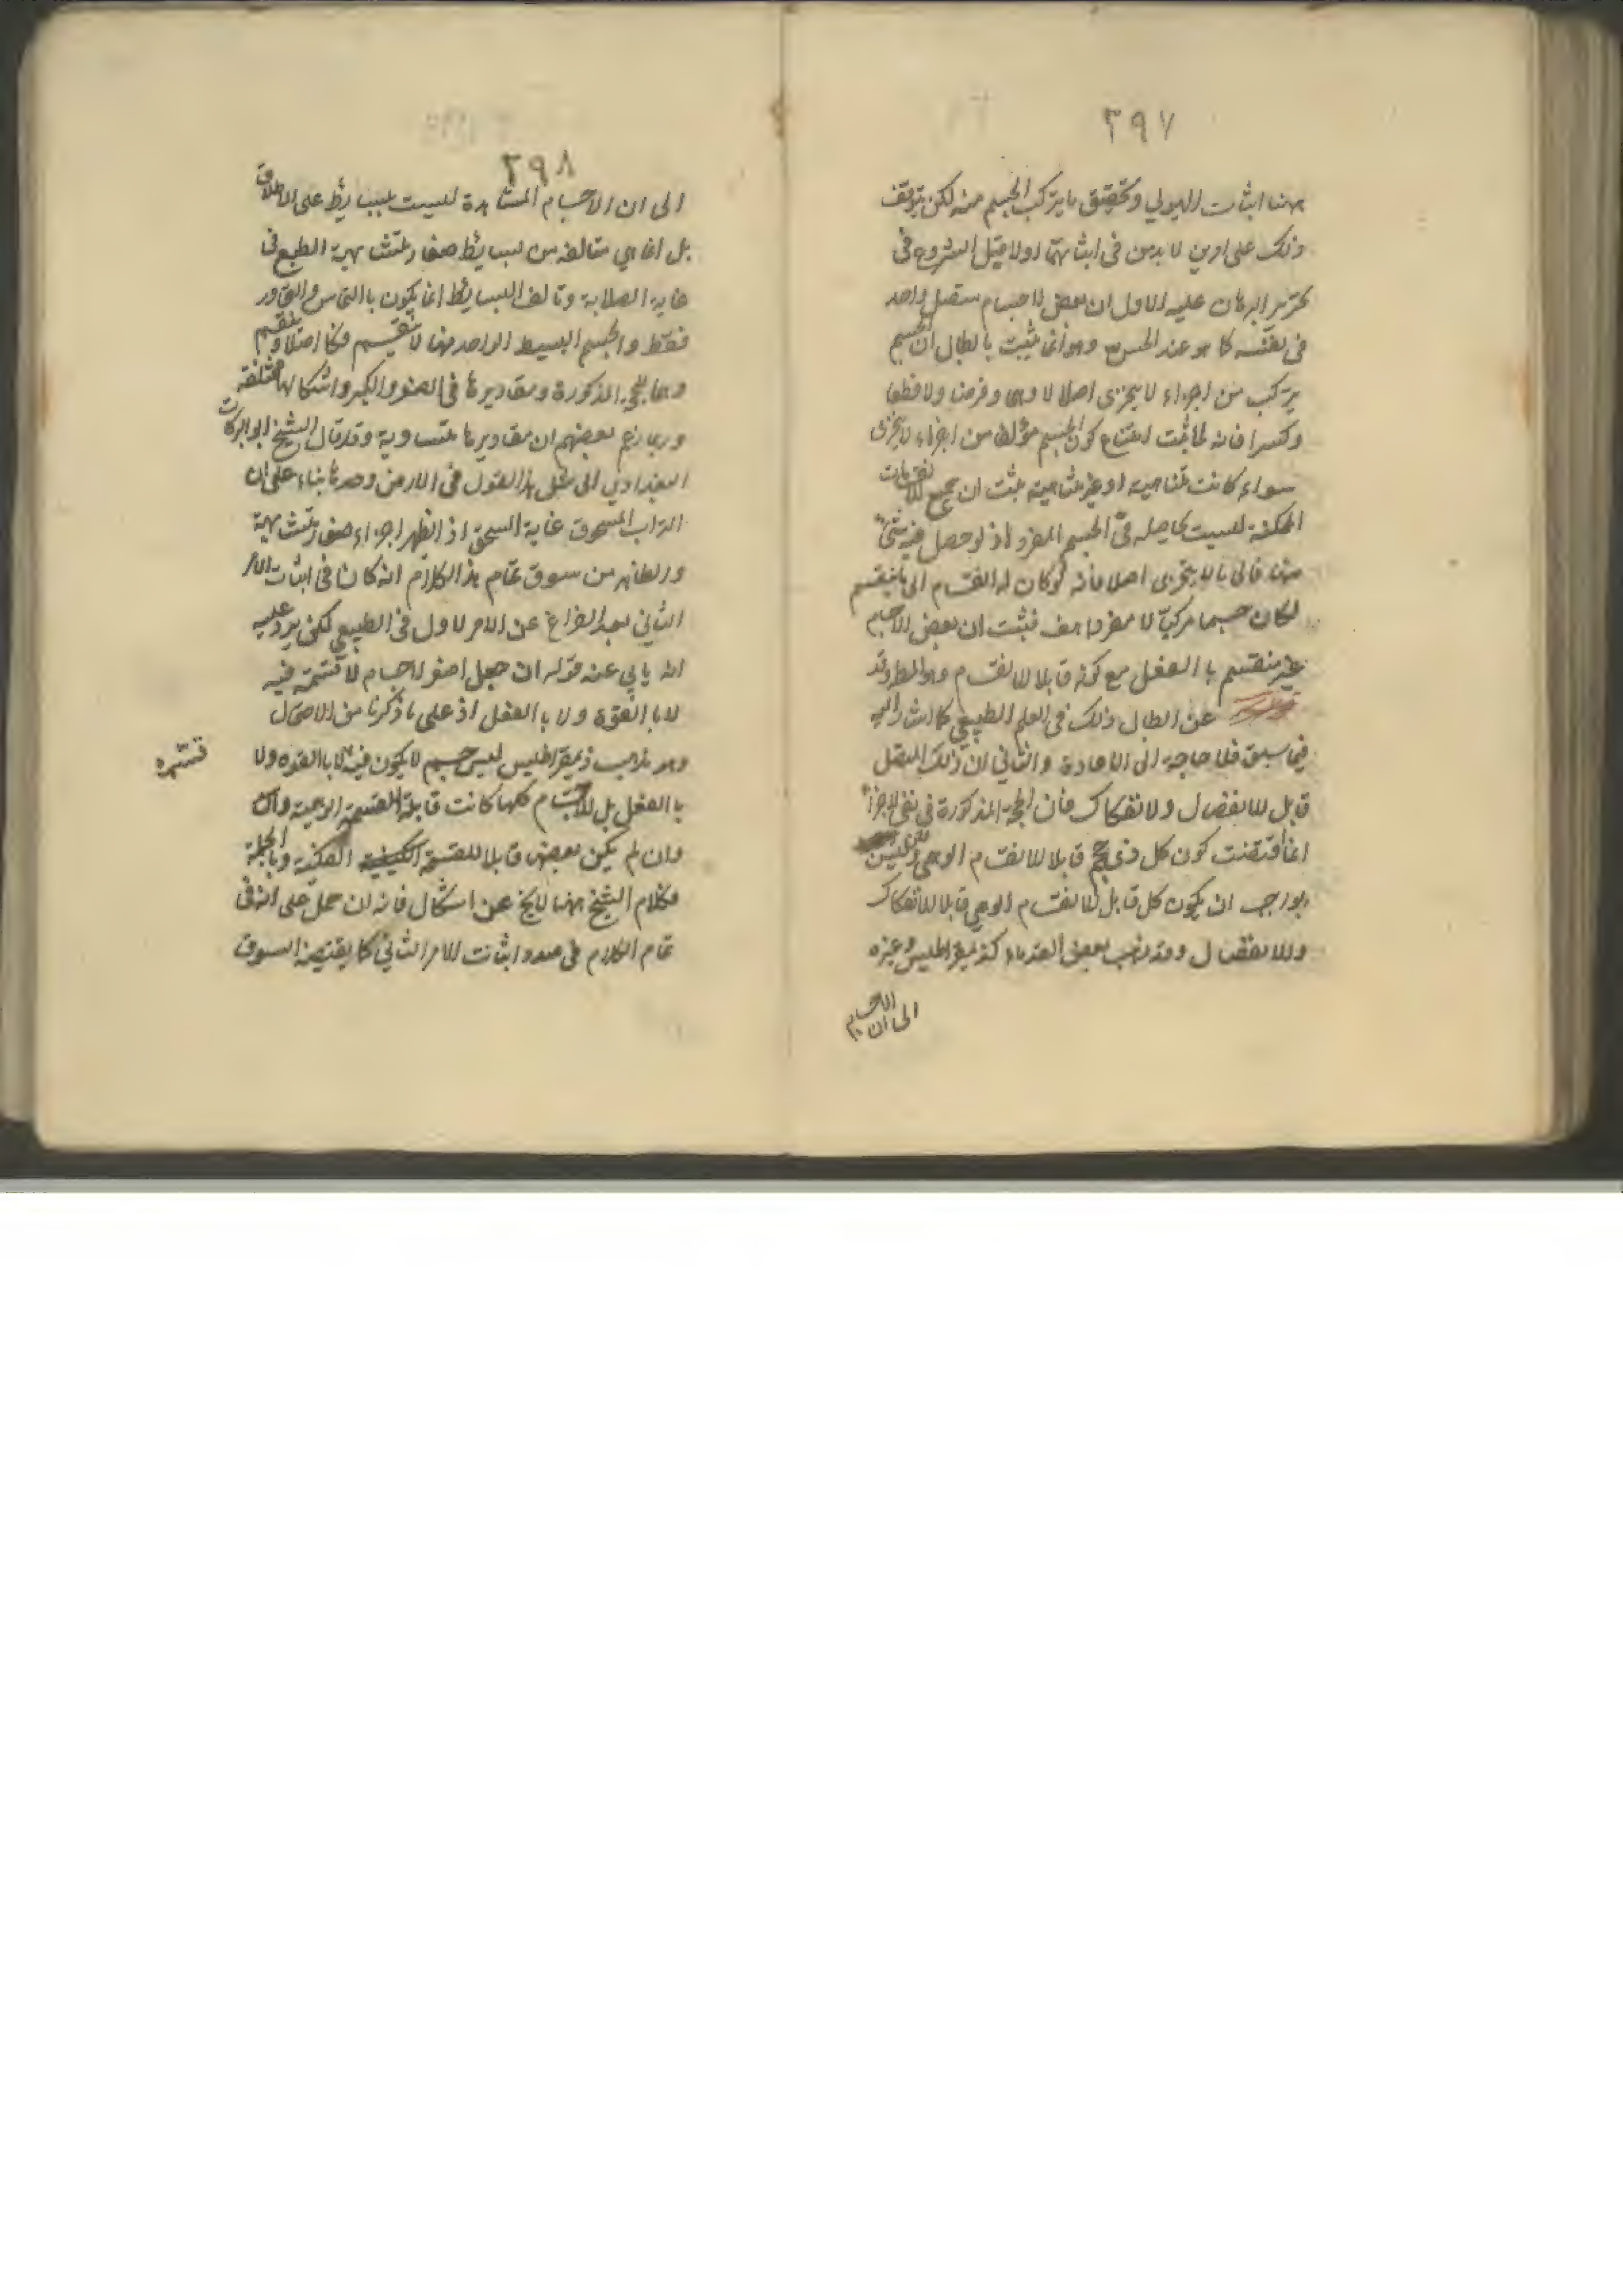 ٣٩٧
ههنا اثبات الهيولي وتحقيق ما يتركب الجسم منه لكن يتوقف
ذلك على امرين لا بد من في اثباتهما اولا قبل الشروع في
تحرير البرهان عليه الاول ان بعض الاجسام متصل واحد
في نفسه كما هو عند الحس وهو انما يثبت بابطال ان الجسم
يتركب من اجزاء لا يتجزى اصلا لا وهما وفرضا ولا قطعا
وكسرا فانه لما ثبت امتناع كون الجسم مؤلفا من اجزاء لا يتجزى
سواء كانت متناهية او غير متناهية ثبت ان جميع الانقسامات
الممكنة ليست بحاصله في الجسم المفرد اذ لو حصل فيه شئ
منها فالى ما لا يتجزى اصلا فانه لو كان له انقسام الى ما ينقسم
لكان جسما مركبا لا مفردا هف فثبت ان بعض الاجسام
غير منقسم با الفعل مع كونه قابلا للانقسام وهو المط وقد
عن ابطال ذلك في العلم الطبيعي كما اشار اليه
فيما سبق فلا حاجة الى الاعادة والثاني ان ذلك المتصل
قابل للانفصال ولانفكاك فان الحجة المذكورة في نفي الاجزاء
انما اقتضت كون كل ذي حجم قابلا للانقسام الوهمي وليس
بواجب ان يكون كل قابل للانقسام الوهمي قابلا للانفكاك
وللانفصال وقد ذهب بعض القدماء كذيمقراطيس وغيره
الى ان الاجسام
٣٩٨
الى ان الاجسام المشاهدة ليست ببسايط على الاطلاق
بل انما هي متالفة من بسايط صغار متشابهة الطبع في
غاية الصلابة وتالف البسايط انما يكون با التماس والتجاور
فقط والجسم البسيط الواحد منها لا ينقسم فكا اصلا وينقسم
وهما للحجة المذكورة ومقاديرها في الصغر والكبر واشكالها مختلفة
وربما زعم بعضهم ان مقاديرها متساوية وقد قال الشيخ ابو البركات
البغدادي الى مثل هذا القول في الارض وحدها بناء على ان
التراب المسحوق غاية السحق اذ انظهر اجزاء صغار متشابهة
والظاهر من سوق تمام هذا الكلام انه كان في اثبات الامر
الثاني بعد الفراغ عن الامر لاول في الطبيعي لكن يرد عليه
انه يابي عنه قوله ان جعل اصغر الاجسام لا قسمة فيه
لا با القوة ولا با الفعل اذ على ما ذكرنا من الاحتمال
وهو مذهب ذيمقراطيس ليس جسم لا يكون فيه لا با القوه ولا
قسمة
با الفعل بل الاجسام كلها كانت قابلة القسمة الوهمية وان
وان لم يكن بعضها قابلا للقسمة الفكية وبالجملة
فكلام الشيخ ههنا لا يخ عن اشكال فانه ان حمل على انه في
تمام الكلام في صدد اثبات الامر الثاني كما يقتضيه السوق